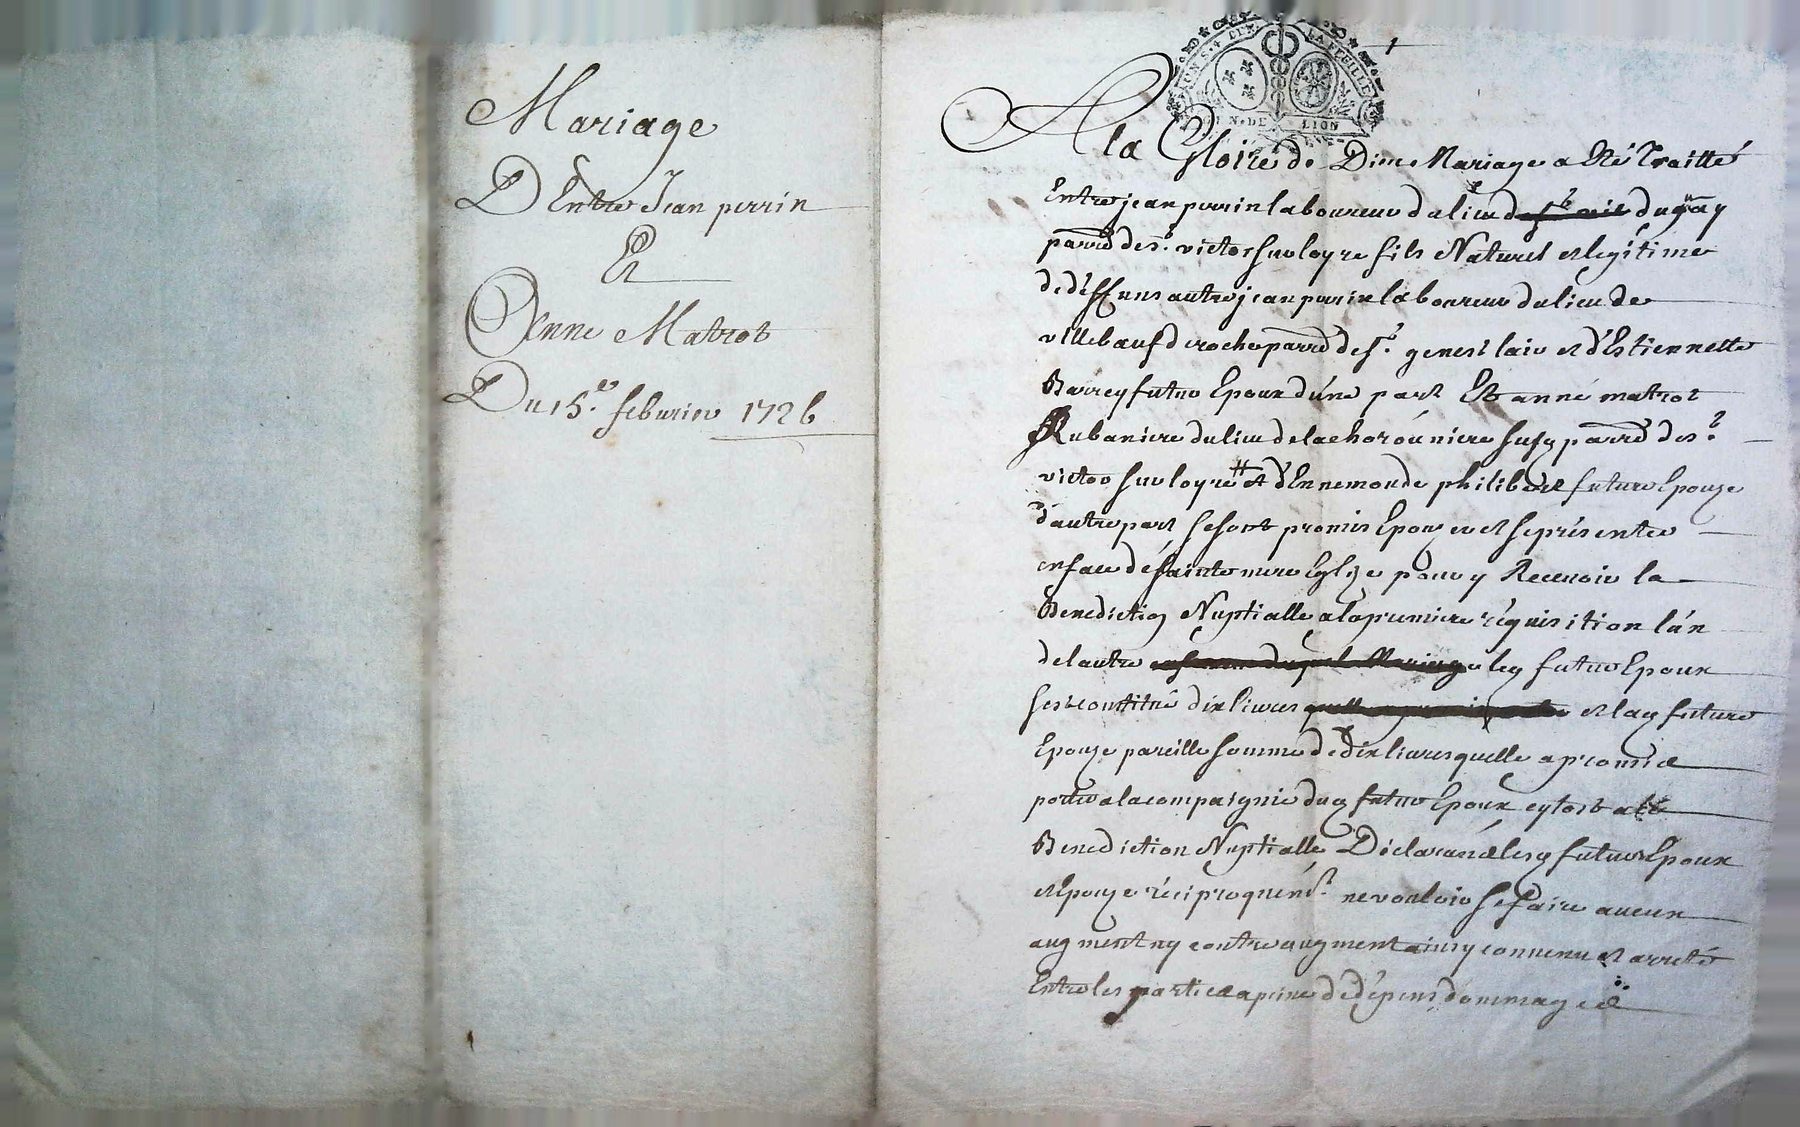 Mariage
D'Entre Jean perrin
Et
Anne Matrot
Du 15.e feburier 1726
1
UN S. 4 DEN. LA FEUILLE
GEN. DE LION
A la Gloire de Dieu Mariage a Eté Traitté
Entre jean perrin laboureur du lieu du guay
parre de st. victor sur loyre fils Naturel et legitime
de deffunt autre jean perrin laboureur du lieu de
villebœuf de roche parre de st. genest lair et d'Estiennette
Barrey futur Epoux d'une part Et anne matrot
Rubaniere du lieu de la susy parre de st.
victor sur loyre # et d'Ennemonde philibert future Epouze
d'autre part se sont promis Epouzer et se présenter
en face de sainte mere Eglize pour y Recevoir la
Benediction Nuptialle a la premiere réquisition l'un
de l'autre ley futur Epoux
s'est constitué dix livres et lay future
Epouze pareille somme de dix livres quelle a promis de
porter a la compaignie duy futur Epoux sytost a le
Benediction Nuptialle Déclarant lesy futurs Epoux
et Epouze réciproquent. ne vouloir se faire aucun
augment ny contre augment ainsy convenu et arreté
Entre les parties a peine de dépens dommage et